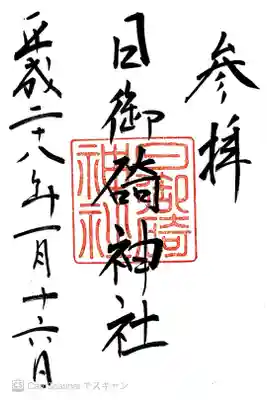 参拝
日御碕神社
平成二十八年一月十六日
日御碕
神社
CamScanner でスキャン